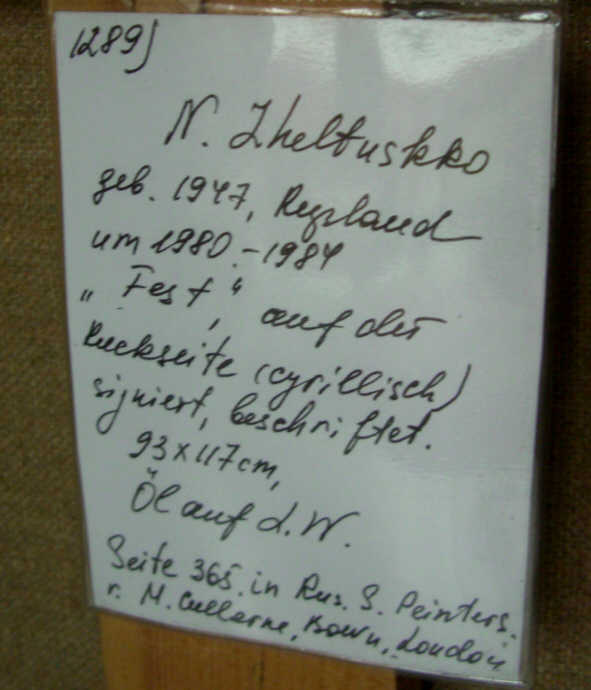 1289)
N. Zheltuskko
geb. 1947, Russland
um 1980.-1984
"Fest", auf der
Rückseite (cyrillisch)
signiert, beschriftet.
93x117cm,
Öl auf L.W.
Seite 365 in Rus. S. Peinters.
v. M. Cullerne, Bown, London